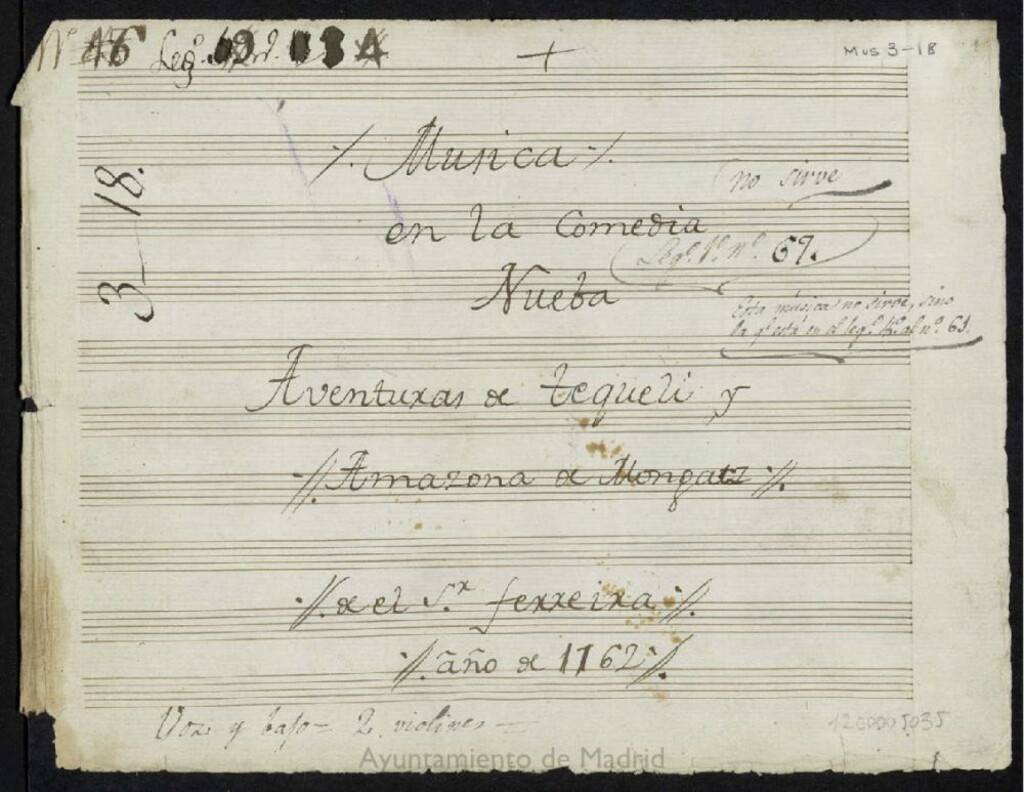 Nº 16 Leg.º
+
Mus 3-18
3-18.
·/. Musica ·/.
no sirve
en la Comedia
Leg.º 1.º n.º 69.
Nueba
Esta música no sirve, sino
la q.e está en el leg.º 1.º al nº. 61.
Aventuras de tequeli y
·//. Amazona de Mongatz ·//.
·//. de el S.r ferreira ·//.
·//. año de 1762 ·//.
Voz y bajo - 2 violines -
1200005035
Ayuntamiento de Madrid